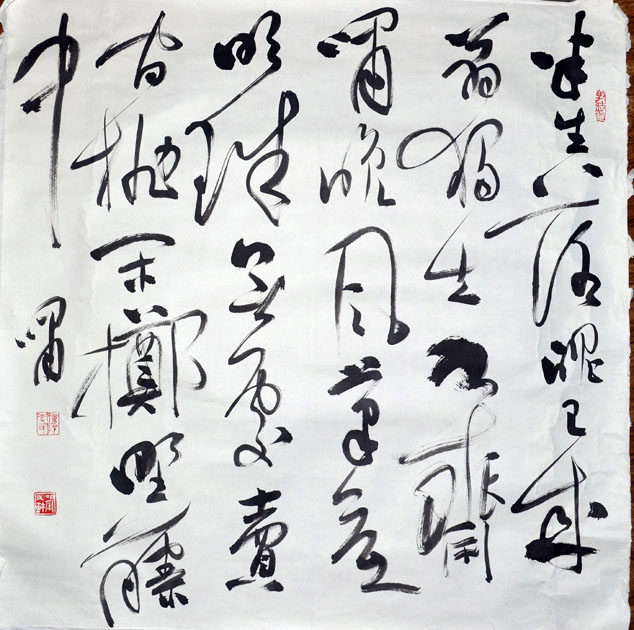 半生落魄已成
翁獨立書齋
嘯晚風筆底
明珠無處賣
閒拋閑擲野藤
中
嘯